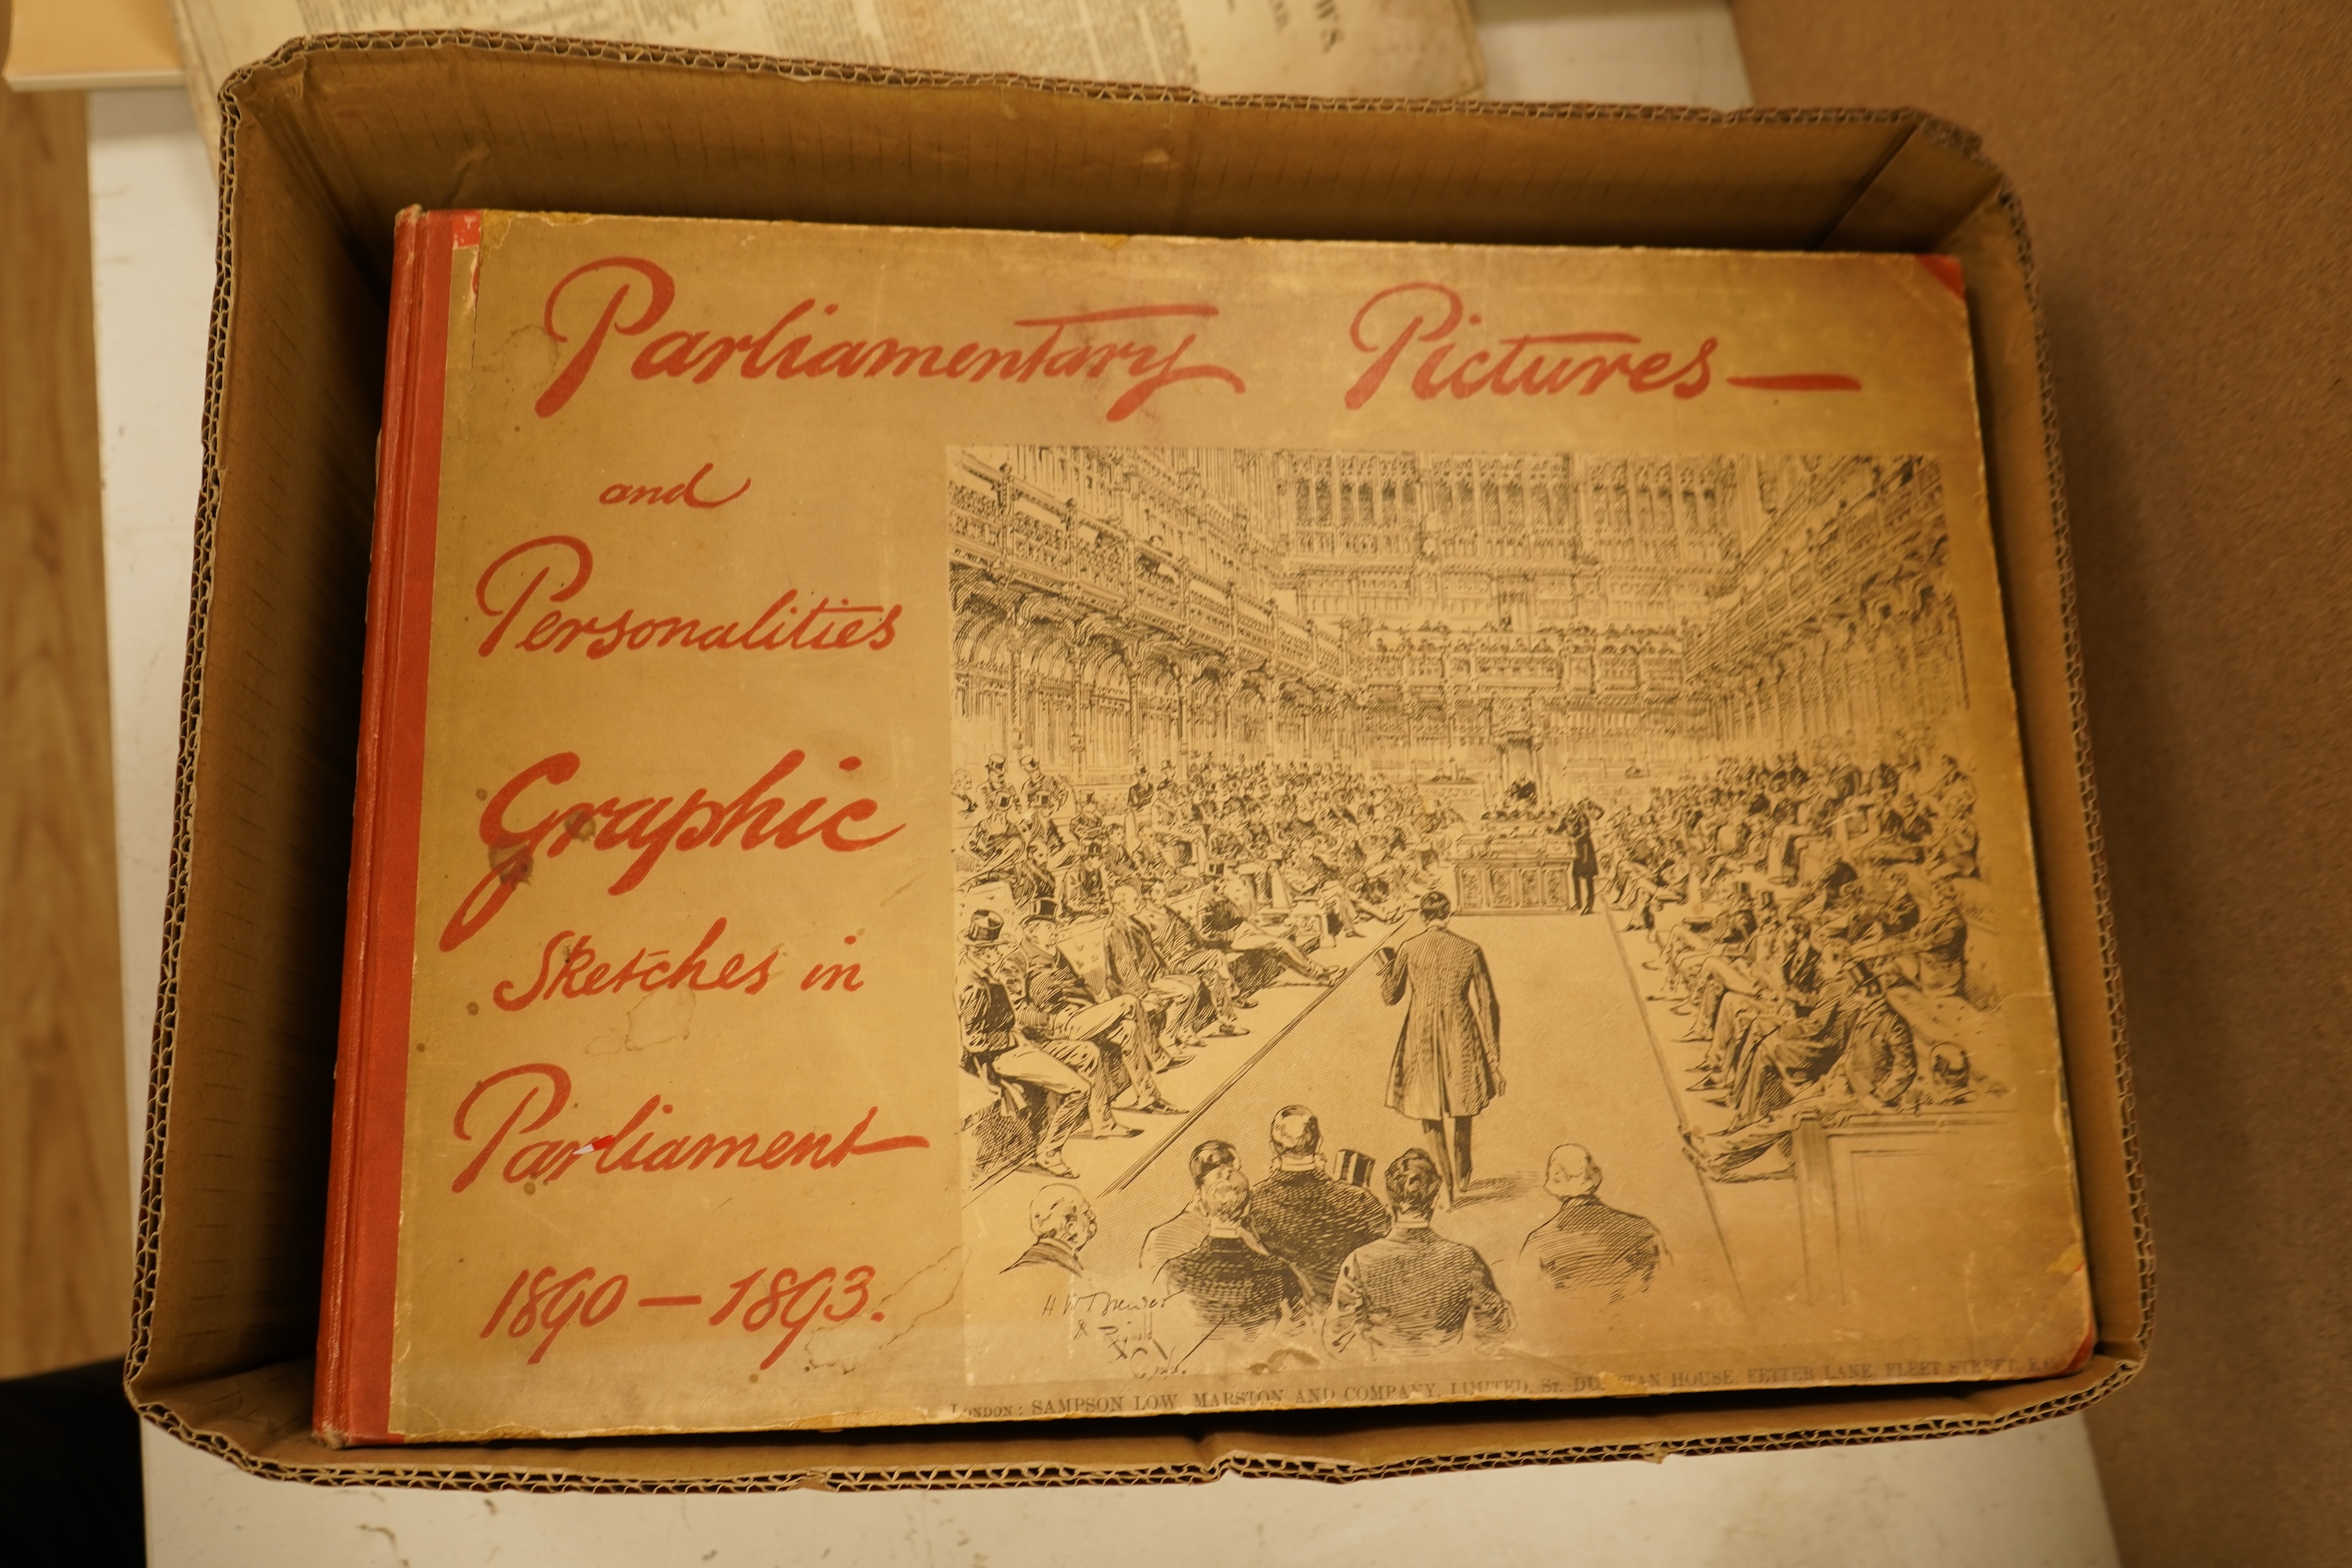 WS.
Parliamentary Pictures —
and
Personalities
Graphic
Sketches in
Parliament
1890 – 1893.
H W Brewer
&
LONDON: SAMPSON LOW, MARSTON AND COMPANY, LIMITED, ST. DUNSTAN HOUSE, FETTER LANE, FLEET STREET,